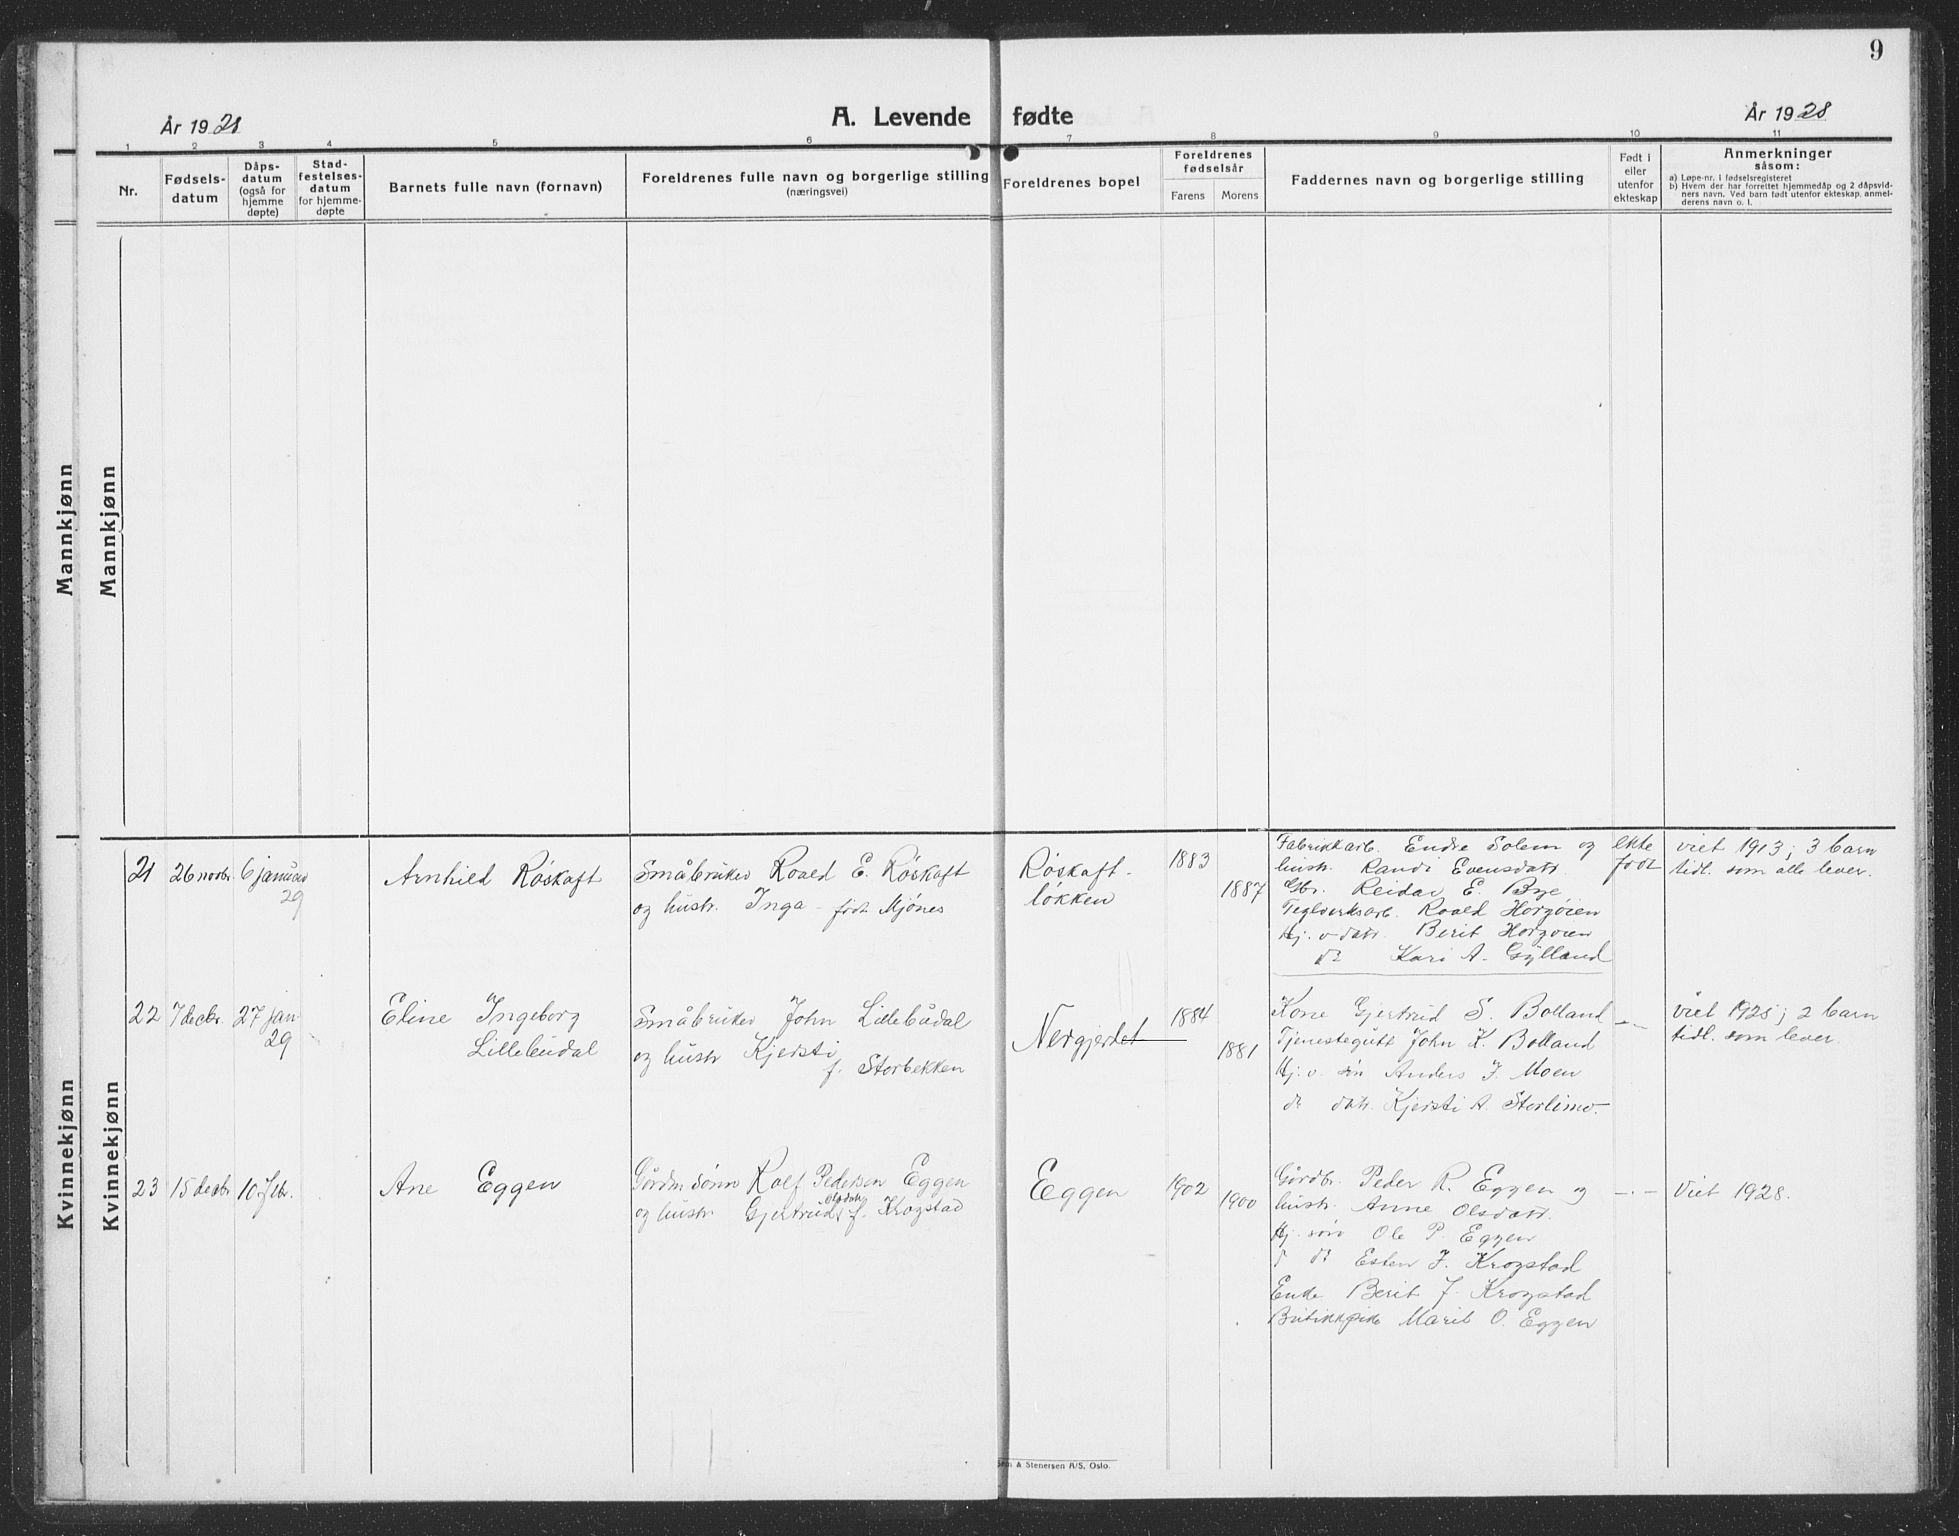 9
År 1928
A. Levende fødte
År 1928
1 2 3 4 5 6 7 8 9 10 11
Nr.
Fødsels-
datum
Dåps-
datum
(også for
hjemme
døpte)
Stad-
festelses-
datum
for hjemme-
døpte
Barnets fulle navn (fornavn)
Foreldrenes fulle navn og borgerlige stilling
(næringsvei)
Foreldrenes bopel
Foreldrenes
fødselsår
Farens Morens
Faddernes navn og borgerlige stilling
Født i
eller
utenfor
ekteskap
Anmerkninger
såsom:
a) Løpe-nr. i fødselsregisteret
b) Hvem der har forrettet hjemmedåp og 2 dåpsvid-
ners navn. Ved barn født utenfor ekteskap, anmel-
derens navn o. l.
Mannkjønn
Mannkjønn
Kvinnekjønn
Kvinnekjønn
21 26 novbr. 6 januar
29
Arnhild Røskaft
Småbruker Roald E. Røskaft
og hustr. Inga født Mjønes
Røskaft-
løkken
1883
1887
Fabrikkarb. Endre Solem og
hustr. Randi Evensdatr.
Gbr. Reidar E. Bye
Teglverksarb. Roald Horgøien
Hj. v. datr. Berit Horgøien
do Kari A. Gylland
ekte
født
viet 1913; 3 barn
tidl. som alle lever.
22 7 decbr. 27 jan
29
Eline Ingeborg
Lillebudal
Småbruker John Lillebudal
og hustr Kjersti
f. Storbekken
Nergjerdet
1884
1881
Kone Gjertrud S. Bolland
Tjenestegutt John K. Bolland
Hj. v. søn Anders J. Moen
do datr. Kjersti A. Storlimo.
-"-
viet 1925; 2 barn
tidl. som lever.
23 15 decbr 10 febr.
Ane Eggen
Gårdm sønn Rolf Pedersen Eggen
og hustr. Gjertrud Olsdtr f. Krogstad
Eggen
1902
1900
Gårdbr. Peder R. Eggen og
hustr. Anne Olsdatr.
Hj. sønn Ole P. Eggen
do Esten J. Krogstad
Enke Berit J. Krogstad
Butikkpike Marit O. Eggen
-"-
Viet 1928.
& Stenersen A/S, Oslo.